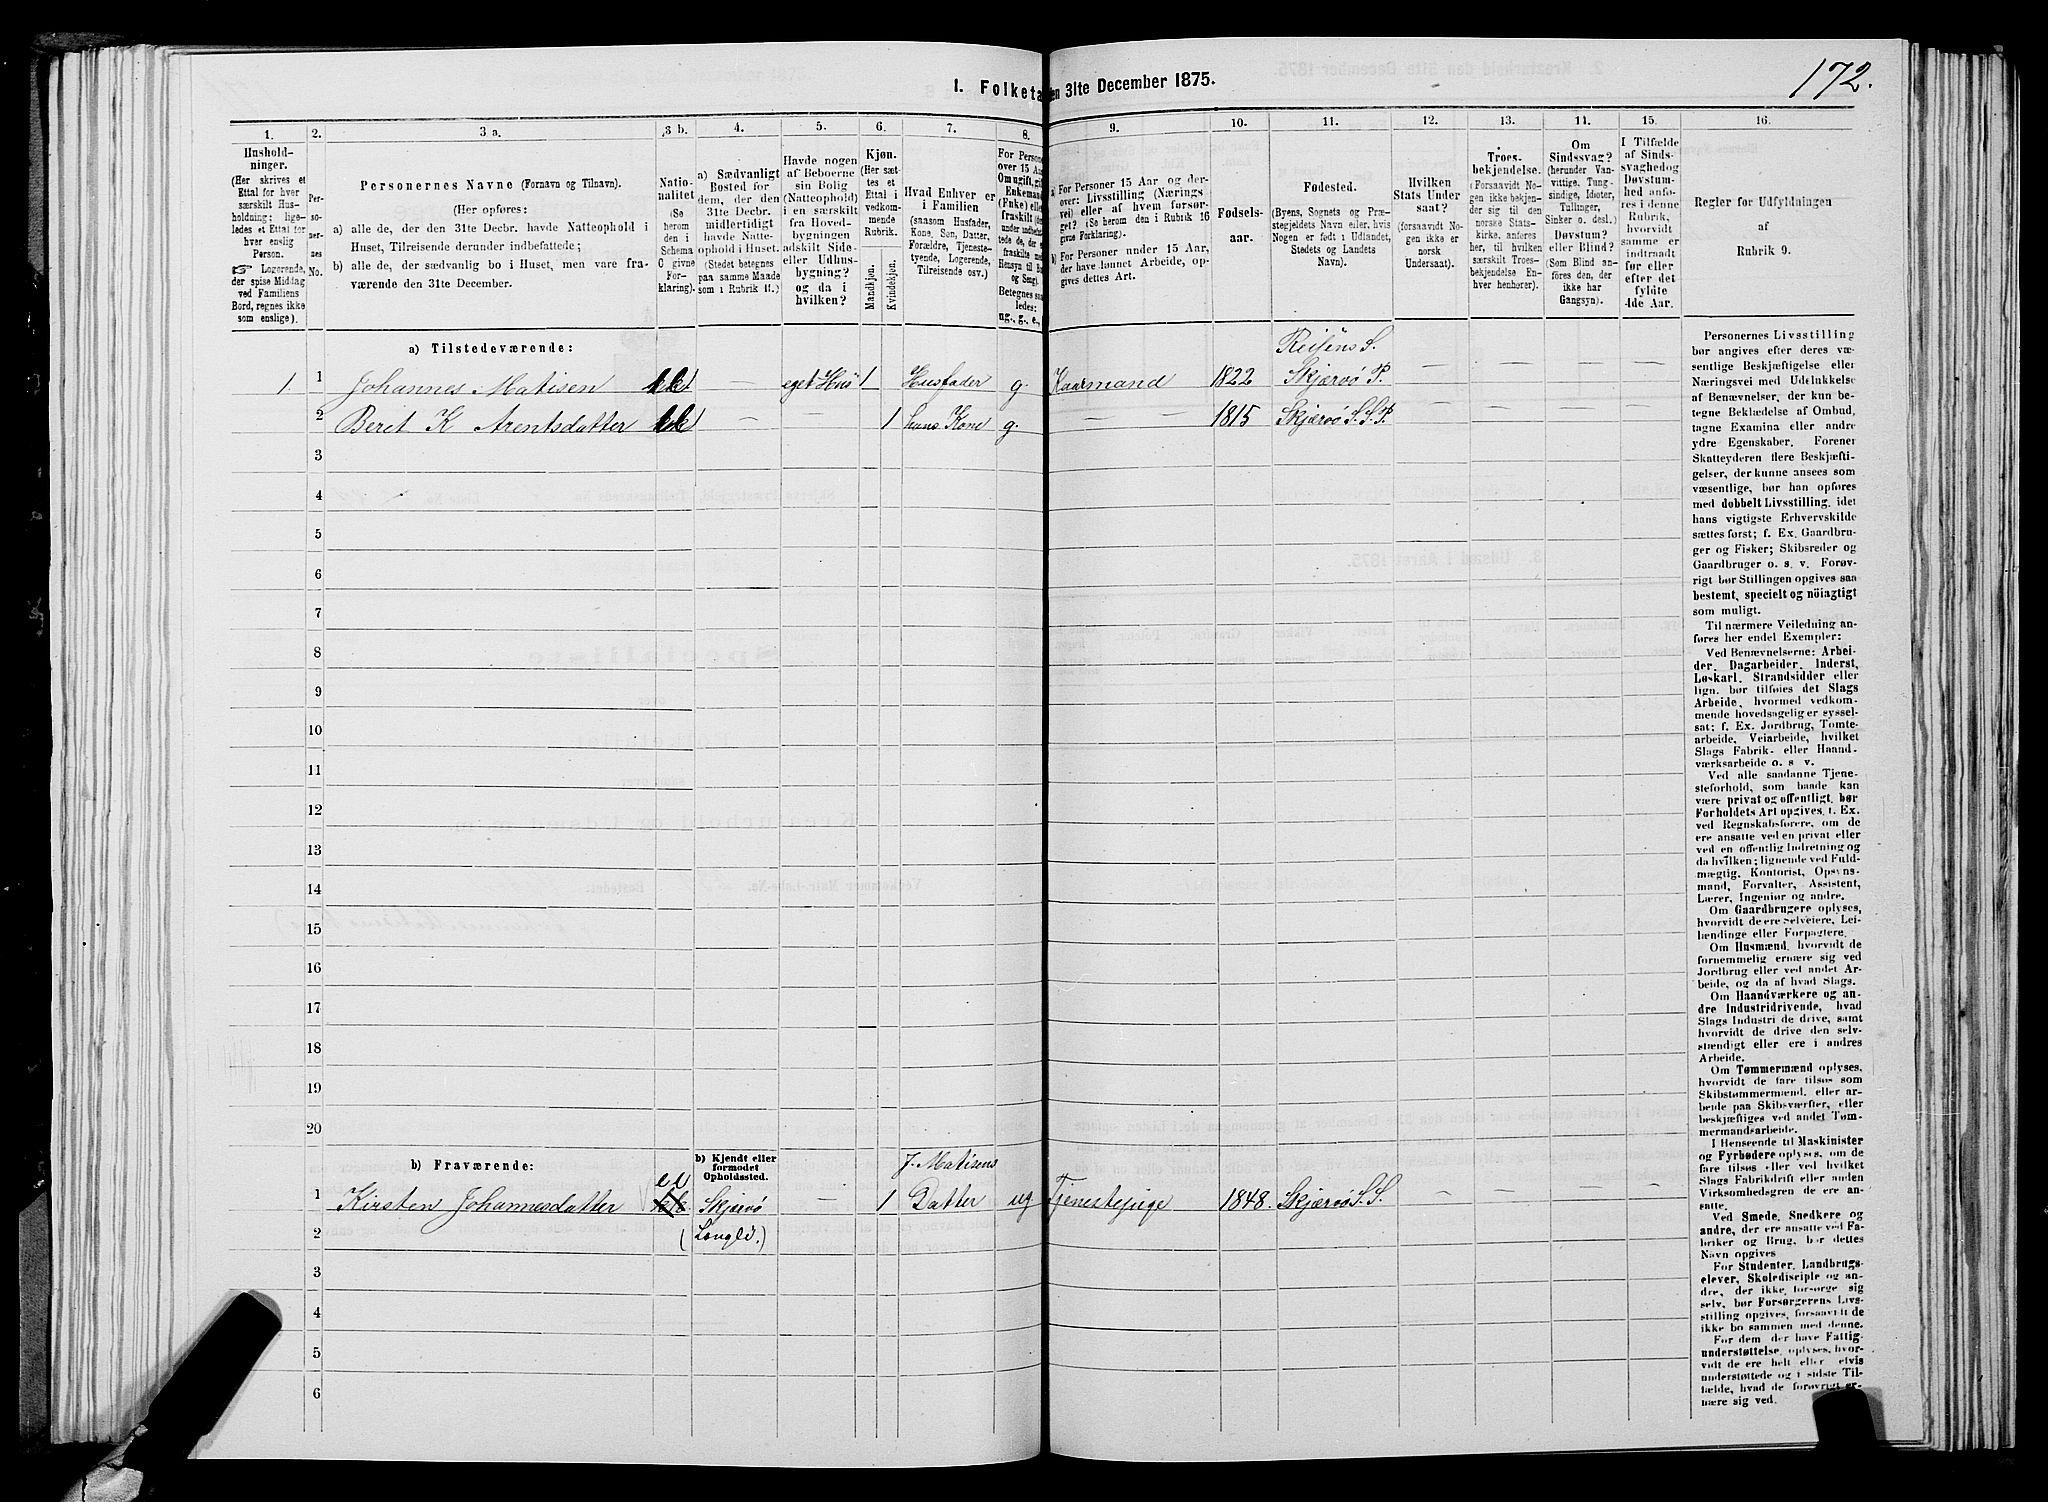 1. Folketa en 31te December 1875.
172.
1. 2. 3 a. 3 b. 4. 5. 6. 7. 8. 9. 10. 11. 12. 13. 14. 15. 16.
Hushold-
ninger.
(Her skrives et
Ettal for hver
særskilt Hus-
holdning; lige-
ledes et Ettal for
hver enslig
Person.
☞ Logerende,
der spise Middag
ved Familiens
Bord, regnes ikke
som enslige).
Per-
so-
ner-
nes
No.
Personernes Navne (Fornavn og Tilnavn).
(Her opføres:
a) alle de, der den 31te Decbr. havde Natteophold i
Huset, Tilreisende derunder indbefattede;
b) alle de, der sædvanlig bo i Huset, men vare fra-
værende den 31te December.
Natio-
nalitet
(Se
herom
den i
Schema
O givne
For-
klaring).
a) Sædvanligt
Bosted for
dem, der den
31te Decbr.
midlertidigt
havde Natte-
ophold i Huset.
(Stedet betegnes
paa samme Maade
som i Rubrik 11.)
Havde nogen
af Beboerne
sin Bolig
(Natteophold)
i en særskilt
fra Hoved-
bygningen
adskilt Side-
eller Udhus-
bygning?
og da i
hvilken?
Kjøn.
(Her sæt-
tes et
Ettal i
vedkom-
mende
Rubrik.
Mandkjøn.
Kvindekjøn.
Hvad Enhver er
i Familien
(saasom Husfader,
Kone, Søn, Datter,
Forældre, Tjeneste-
tyende, Logerende,
Tilreisende osv.)
For Persone
over 15 Aar
Om ugift, gif
Enkemand
(Enke) elle
fraskilt
Betegnes saa
ledes:
ug., g., e.,
a) For Personer 15 Aar og der-
over: Livsstilling (Nærings
vei) eller af hvem forsør-
get? (Se herom den i Rubrik 16
givne Forklaring).
b) For Personer under 15 Aar,
der have lønnet Arbeide, op-
gives dettes Art.
Fødsels-
aar.
Fødested.
(Byens, Sognets og Præ-
stegjeldets Navn eller, hvis
Nogen er født i Udlandet,
Stedets og Landets
Navn).
Hvilken
Stats Under
saat?
(forsaavidt No-
gen ikke er
norsk
Undersaat).
Troes-
bekjendelse.
(Forsaavidt No-
gen ikke bekjen-
der sig til den
norske Stats-
kirke, anføres
her, til hvilken
særskilt Troes-
bekjendelse En-
hver henhører).
Om
Sindssvag?
(herunder Van-
vittige, Tung-
sindige, Idioter,
Tullinger,
Sinker o. desl.)
Døvstum?
eller Blind?
(Som Blind an-
føres den, der
ikke har
Gangsyn).
I Tilfælde
af Sinds-
svaghed og
Døvstum-
hed anfø-
res i denne
Rubrik,
hvorvidt
samme er
indtraadt
før eller
efter det
fyldte
4de Aar.
Regler før Udfyldningen
af
Rubrik 9.
a) Tilstedeværende:
Reisens S.
1. 1 Johannes Matisen — eget Hus 1 Husfader g. Kaarmand 1822 Skjærvö P. — — — —
2 Beret K Arentsdatter — — 1 hans Kone g. — 1815 Skjærvö S. S. P. — — — —
3
4
5
6
7
8
9
10
11
12
13
14
15
16
17
18
19
20
b) Fraværende:
b) Kjendt eller
formodet
Opholdssted.
J. Matisens
1 Kirsten Johannesdatter Skjærvö — 1 Datter ug. Tjenestepige 1848. Skjærvö S. S. — — — —
2
3
4
5
6
Personernes Livsstilling
bør angives efter deres væ-
sentlige Beskjæftigelse eller
Næringsvei med Udelukkelse
af Benævnelser, der kun be-
tegne Beklædelse af Ombud,
tagne Examina eller andre
ydre Egenskaber. Forener
Skatteyderen flere Beskjæfti-
gelser, der kunne ansees som
væsentlige, bør han opføres
med dobbelt Livsstilling, idet
hans vigtigste Erhvervskilde
sættes først; f. Ex. Gaardbru-
ger og Fisker; Skibsreder og
Gaardbruger o. s. v. Forøv-
rigt bør Stillingen opgives saa
bestemt, specielt og nöiagtigt
som muligt.
Til nærmere Veiledning an-
føres her endel Exempler:
Ved Benævnelserne: Arbei-
der, Dagarbeider, Inderst,
Løskarl, Strandsidder eller
lign. bør tilføies det Slags
Arbeide, hvormed vedkom-
mende hovedsagelig er syssel-
sat; f. Ex. Jordbrug, Tomte-
arbeide, Veiarbeide, hvilket
Slags Fabrik- eller Haand-
værksarbeide o. s. v.
Ved alle saadanne Tjene-
steforhold, som baade kan
være privat og offentligt, bør
Forholdets Art opgives, t. Ex.
ved Regnskabsførere, om de
ere ansatte ved en privat eller
ved en offentlig Indretning og
da hvilken; lignende ved Fuld-
mægtig, Kontorist, Opsyns-
mand, Forvalter, Assistent,
Lærer, Ingeniør og andre.
Om Gaardbrugere oplyses,
hvorvidt de ere selveiere, Lei-
lændinge eller Forpagtere.
Om Husmænd, hvorvidt de
fornemmelig ernære sig ved
Jordbrug eller ved andet Ar-
beide, og da af hvad Slags.
Om Haandværkere og an-
dre Industridrivende, hvad
Slags Industri de drive, samt
hvorvidt de drive den selv-
stændigt eller ere i andres
Arbeide.
Om Tømmermænd oplyses,
hvorvidt de fare tilsøs som
Skibstømmermænd, eller ar-
beide paa Skibsværfter, eller
beskjæftiges ved andet Tøm-
mermandsarbeide.
I Henseende til Maskinister
og Fyrbødere oplyses, om de
fare tilsøs eller ved hvilket
Slags Fabrikdrift eller anden
Virksomhed de ere an-
satte.
Ved Smede, Snedkere og
andre, der ere ansatte ved Fa-
briker og Brug, bør dettes
Navn opgives.
For Studenter, Landbrugs-
elever, Skoledisciple og an-
dre, der ikke forsørge sig
selv, bør Forsørgerens Livs-
stilling opgives, forsaavidt de
ikke bo sammen med denne.
For dem, der have Fattig-
understøttelse, oplyses, hvor-
vidt de ere helt eller delvis
understøttede og i sidste Til-
fælde, hvad de forøvrigt er-
nære sig ved.